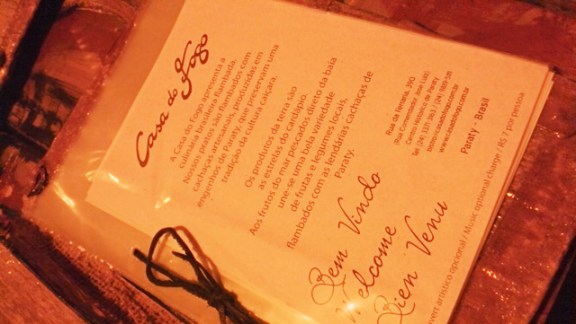 Casa do Fogo
A Casa do Fogo apresenta a
culinária brasileira flambada.
Nossos pratos são flambados com
cachaças artesanais, produzidas em
engenhos de Paraty, que preservam uma
tradição da cultura caiçara.
Os produtos da terra são
as estrelas do cardápio.
Aos frutos do mar pescados direto da baía
une-se uma bela variedade
de frutas e legumes locais,
flambados com as lendárias cachaças de
Paraty.
Bem Vindo
Welcome
Bien Venu
Rua da Ferraria, 390
Centro Histórico de Paraty
Paraty - Brasil
artístico opcional / Music optional charge / R$ 7 por pessoa